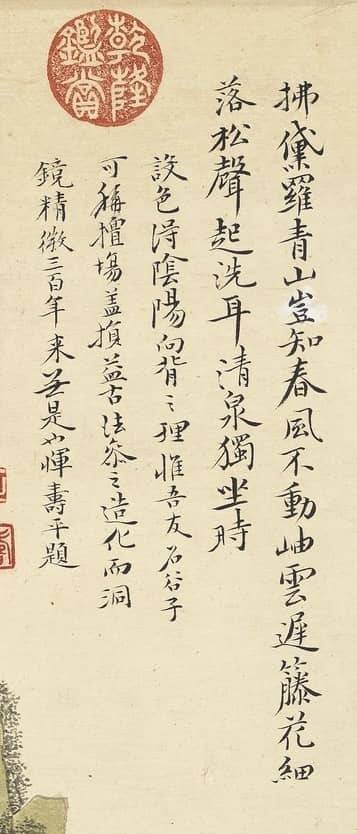 拂黛羅青山豈知春風不動岫雲遲籐花細
落松聲起洗耳清泉獨坐時
設色得陰陽向背之理惟吾友石谷子
可稱擅場盖損益古法參之造化而洞
鏡精微三百年來無是也惲壽平題
乾隆鑑賞